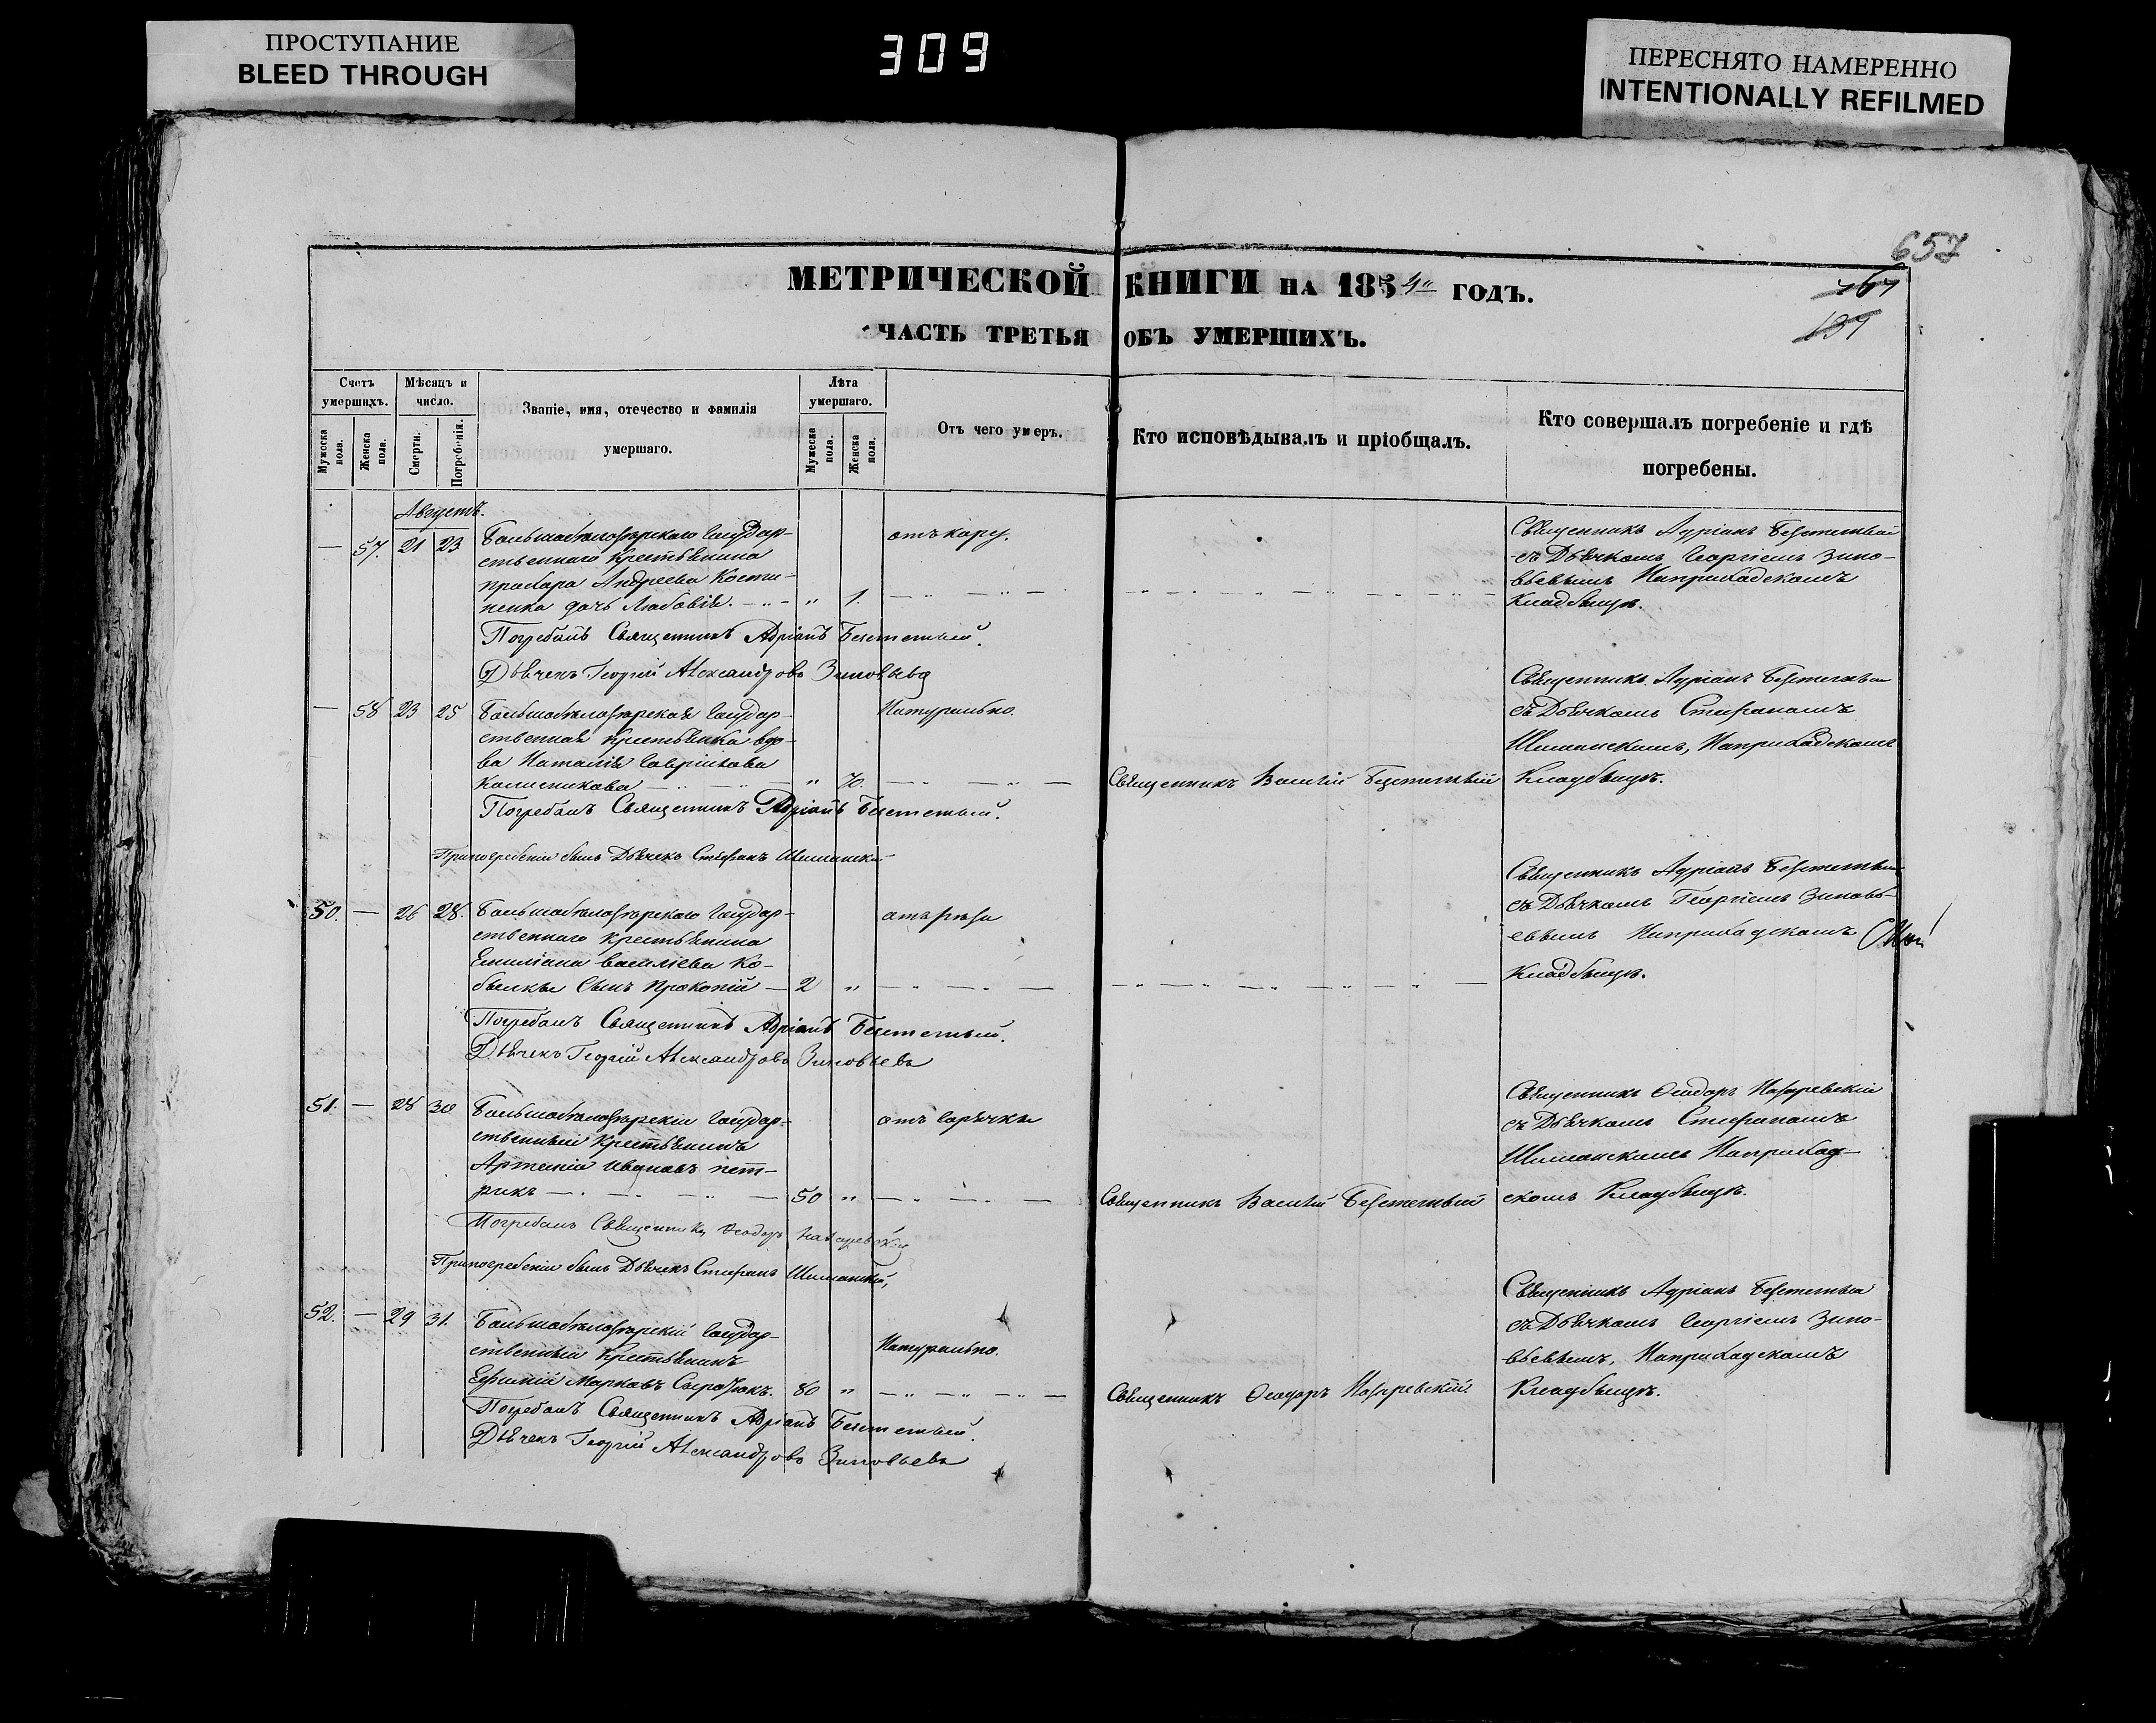 ПРОСТУПАНИЕ
BLEED THROUGH
309
ПЕРЕСНЯТО НАМЕРЕННО
INTENTIONALLY REFILMED
657
МЕТРИЧЕСКОЙ КНИГИ НА 1854 ГОДЪ.
ЧАСТЬ ТРЕТЬЯ ОБЪ УМЕРШИХЪ.
139
Счетъ умершихъ.
Мужеска пола.
Женска пола.
Мѣсяцъ и число.
Смерти.
Погребенія.
Званіе, имя, отечество и фамилія
умершаго.
Лѣта умершаго.
Мужеска пола.
Женска пола.
Отъ чего умеръ.
Кто исповѣдывалъ и пріобщалъ.
Кто совершалъ погребеніе и гдѣ
погребены.
Августъ.
— 57. 21 23
Большебѣлозѣрскаго Государ-
ственнаго Крестьянина
Андреева Кости-
ненка дочь Любовія. " 1.
отъ кору.
Священникъ Адріанъ
съ Дьячкомъ Георгіемъ Зино-
вьевымъ Наприходскомъ
Кладбищѣ.
Погребалъ Священникъ Адріанъ
Дьячекъ Георгій Александровъ Зиновьевъ
— 58 23 25
Большебѣлозѣрская Государ-
ственная Крестьянка вдо-
ва Наталія Гавріилова
Колисникова " 70.
Натурально.
Священникъ Василій
Священникъ Адріанъ
съ Дьячкомъ Стефаномъ
Шиманскимъ, Наприходскомъ
Кладбищѣ.
Погребалъ Священникъ Адріанъ
Припогребеніи былъ Дьячекъ Стефанъ Шимански
50. — 26 28.
Большебѣлозѣрскаго Государ-
ственнаго Крестьянина
Емиліана Василіева Ко-
былки Сынъ Прокопій — 2 "
отъ рѣзи
Священникъ Адріанъ
съ Дьячкомъ Георгіемъ Зиновь-
евымъ Наприходскомъ
Кладбищѣ.
Погребалъ Священникъ Адріанъ
Дьячекъ Георгій Александровъ Зиновьевъ
51. — 28 30
Большебѣлозѣрскій Государ-
ственный Крестьянинъ
Артемій Ивановъ Пет-
рикъ 50 "
отъ Горячки
Священникъ Василій
Священникъ Ѳеодоръ Назаревскій
съ Дьячкомъ Стефаномъ
Шиманскимъ Наприход-
скомъ Кладбищѣ.
Погребалъ Священникъ Ѳеодоръ Назаревскій
Припогребеніи былъ Дьячекъ Стефанъ Шиманскій,
52. — 29 31.
Большебѣлозѣрскій Государ-
ственный Крестьянинъ
Ефимій Марковъ 80 "
Натурально.
Священникъ Ѳеодоръ Назаревскій
Священникъ Адріанъ
съ Дьячкомъ Георгіемъ Зино-
вьевымъ, Наприходскомъ
Кладбищѣ.
Погребалъ Священникъ Адріанъ
Дьячекъ Георгій Александровъ Зиновьевъ